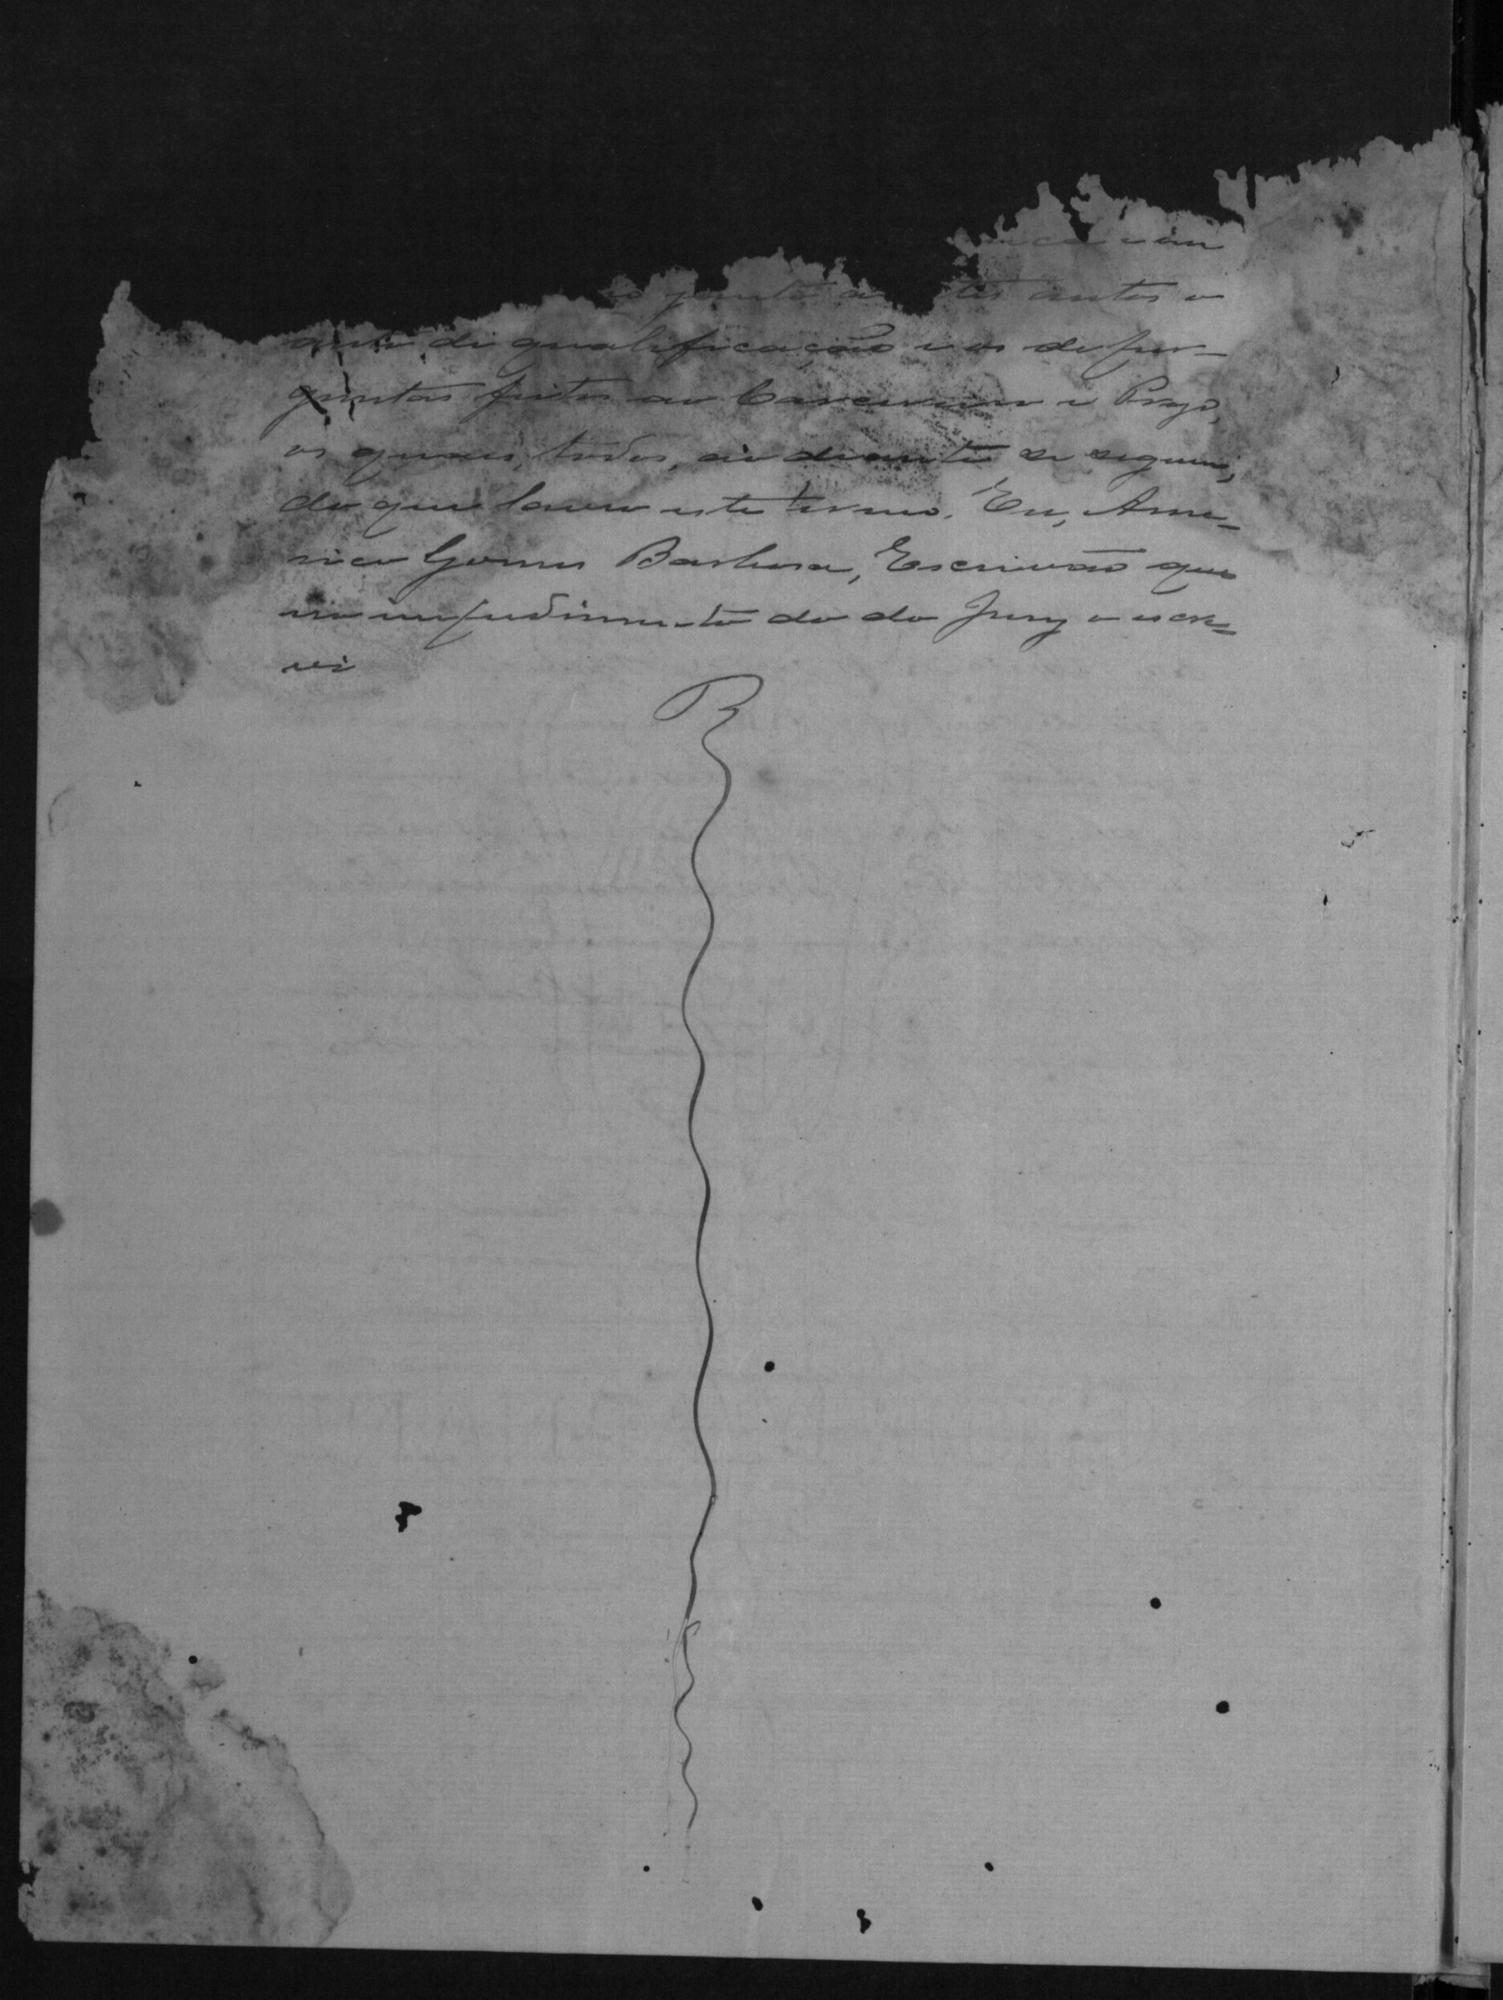 junto a estes autos o
auto de qualificação e os de per-
guntas feitos ao Carcereiro e Praça,
os quaes, todos, ao deante se seguem,
do que lavro este termo. Eu, Ame-
rico Gomes Barbosa, Escrivão que
no impedimento do do Jury o escre-
vi